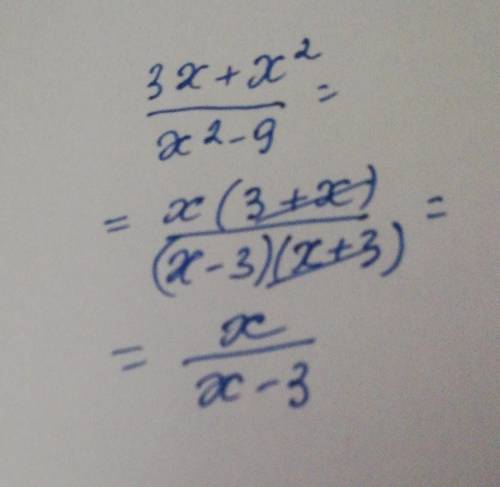 3x + x² / x² - 9 =
= x(3 + x) / (x - 3)(x + 3) =
= x / x - 3